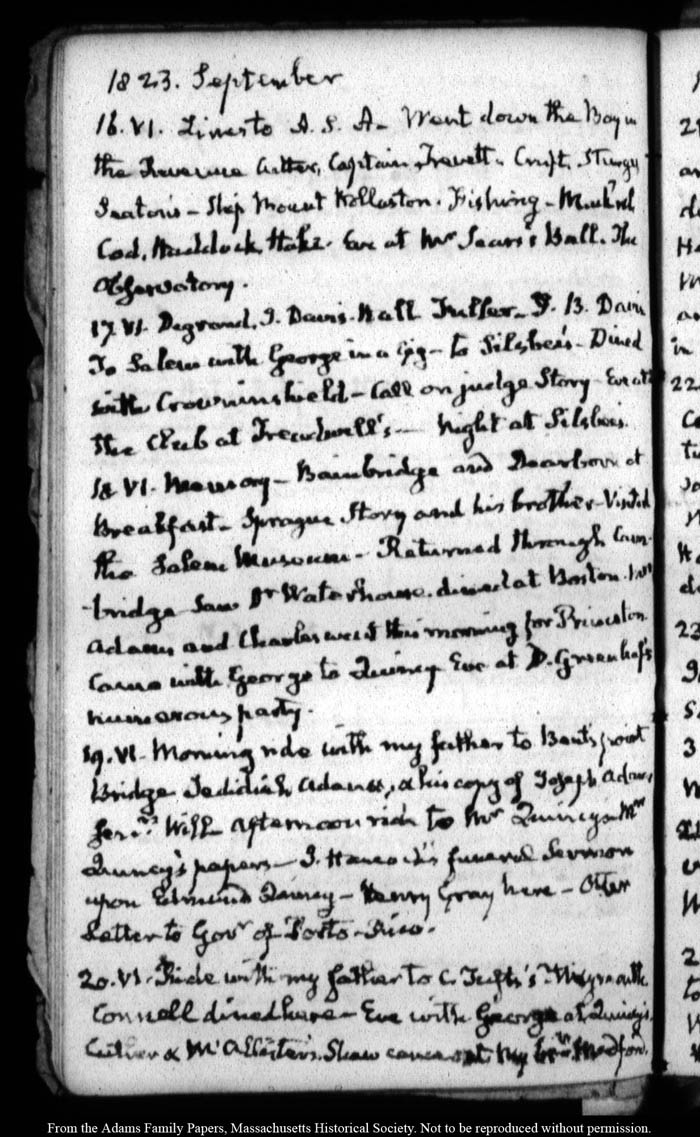 1823. September
16. VI. Lines to A. S. A- Went down the Bay in
the Revenue Cutter, Captain Trevett. Cruft, Sturgis
Seaton's - Ship Mount Wollaston. Fishing - Mackrel
Cod, Haddock, Hake. Eve at Mr Sears's Ball. The
Observatory.
17. VI. Degrand. I. Davis. Hall Fuller - J. B. Davis
To Salem with George in a Gig - to Silsbee's - Dined
with Crowninshield - Call on judge Story - Eve at
the Club at Treadwell's - Night at Silsbee's.
18 VI. Memory - Bainbridge and Dearborn at
Breakfast - Sprague Story and his brother - Visited
the Salem Museum - Returned through Cam-
-bridge Saw Dr Waterhouse. dined at Boston.
Adams and Charles went this morning for Princeton
Came with George to Quincy Eve at D. Greenleaf's
numerous party.
19. VI. Morning ride with my father to Bent's point
Bridge Jedidiah Adams, his copy of Joseph Adams
Senrs Will Afternoon ride to Mr Quincy's Mrs
Quincy's papers - J. Hancock's funeral Sermon
upon Edmund Quincy - Henry Gray here - Otter
Letter to Govr of Porto-Rico.
20. VI. Ride with my father to C. Tufts's Weymouth
Connell dined here - Eve with George at Quincy's.
Cutler & McAllister's. Shaw came my Medford.
From the Adams Family Papers, Massachusetts Historical Society. Not to be reproduced without permission.